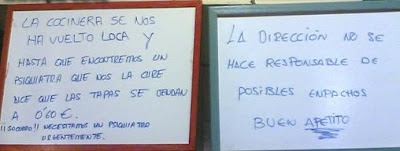 LA COCINERA SE NOS
HA VUELTO LOCA Y
HASTA QUE ENCONTREMOS UN
PSIQUIATRA QUE NOS LA CURE
DICE QUE LAS TAPAS SE VENDAN
A 0'60 €.
¡¡SOCORRO!! NECESITAMOS UN PSIQUIATRA
URGENTEMENTE.
LA DIRECCIÓN NO SE
HACE RESPONSABLE DE
POSIBLES EMPACHOS
BUEN APETITO